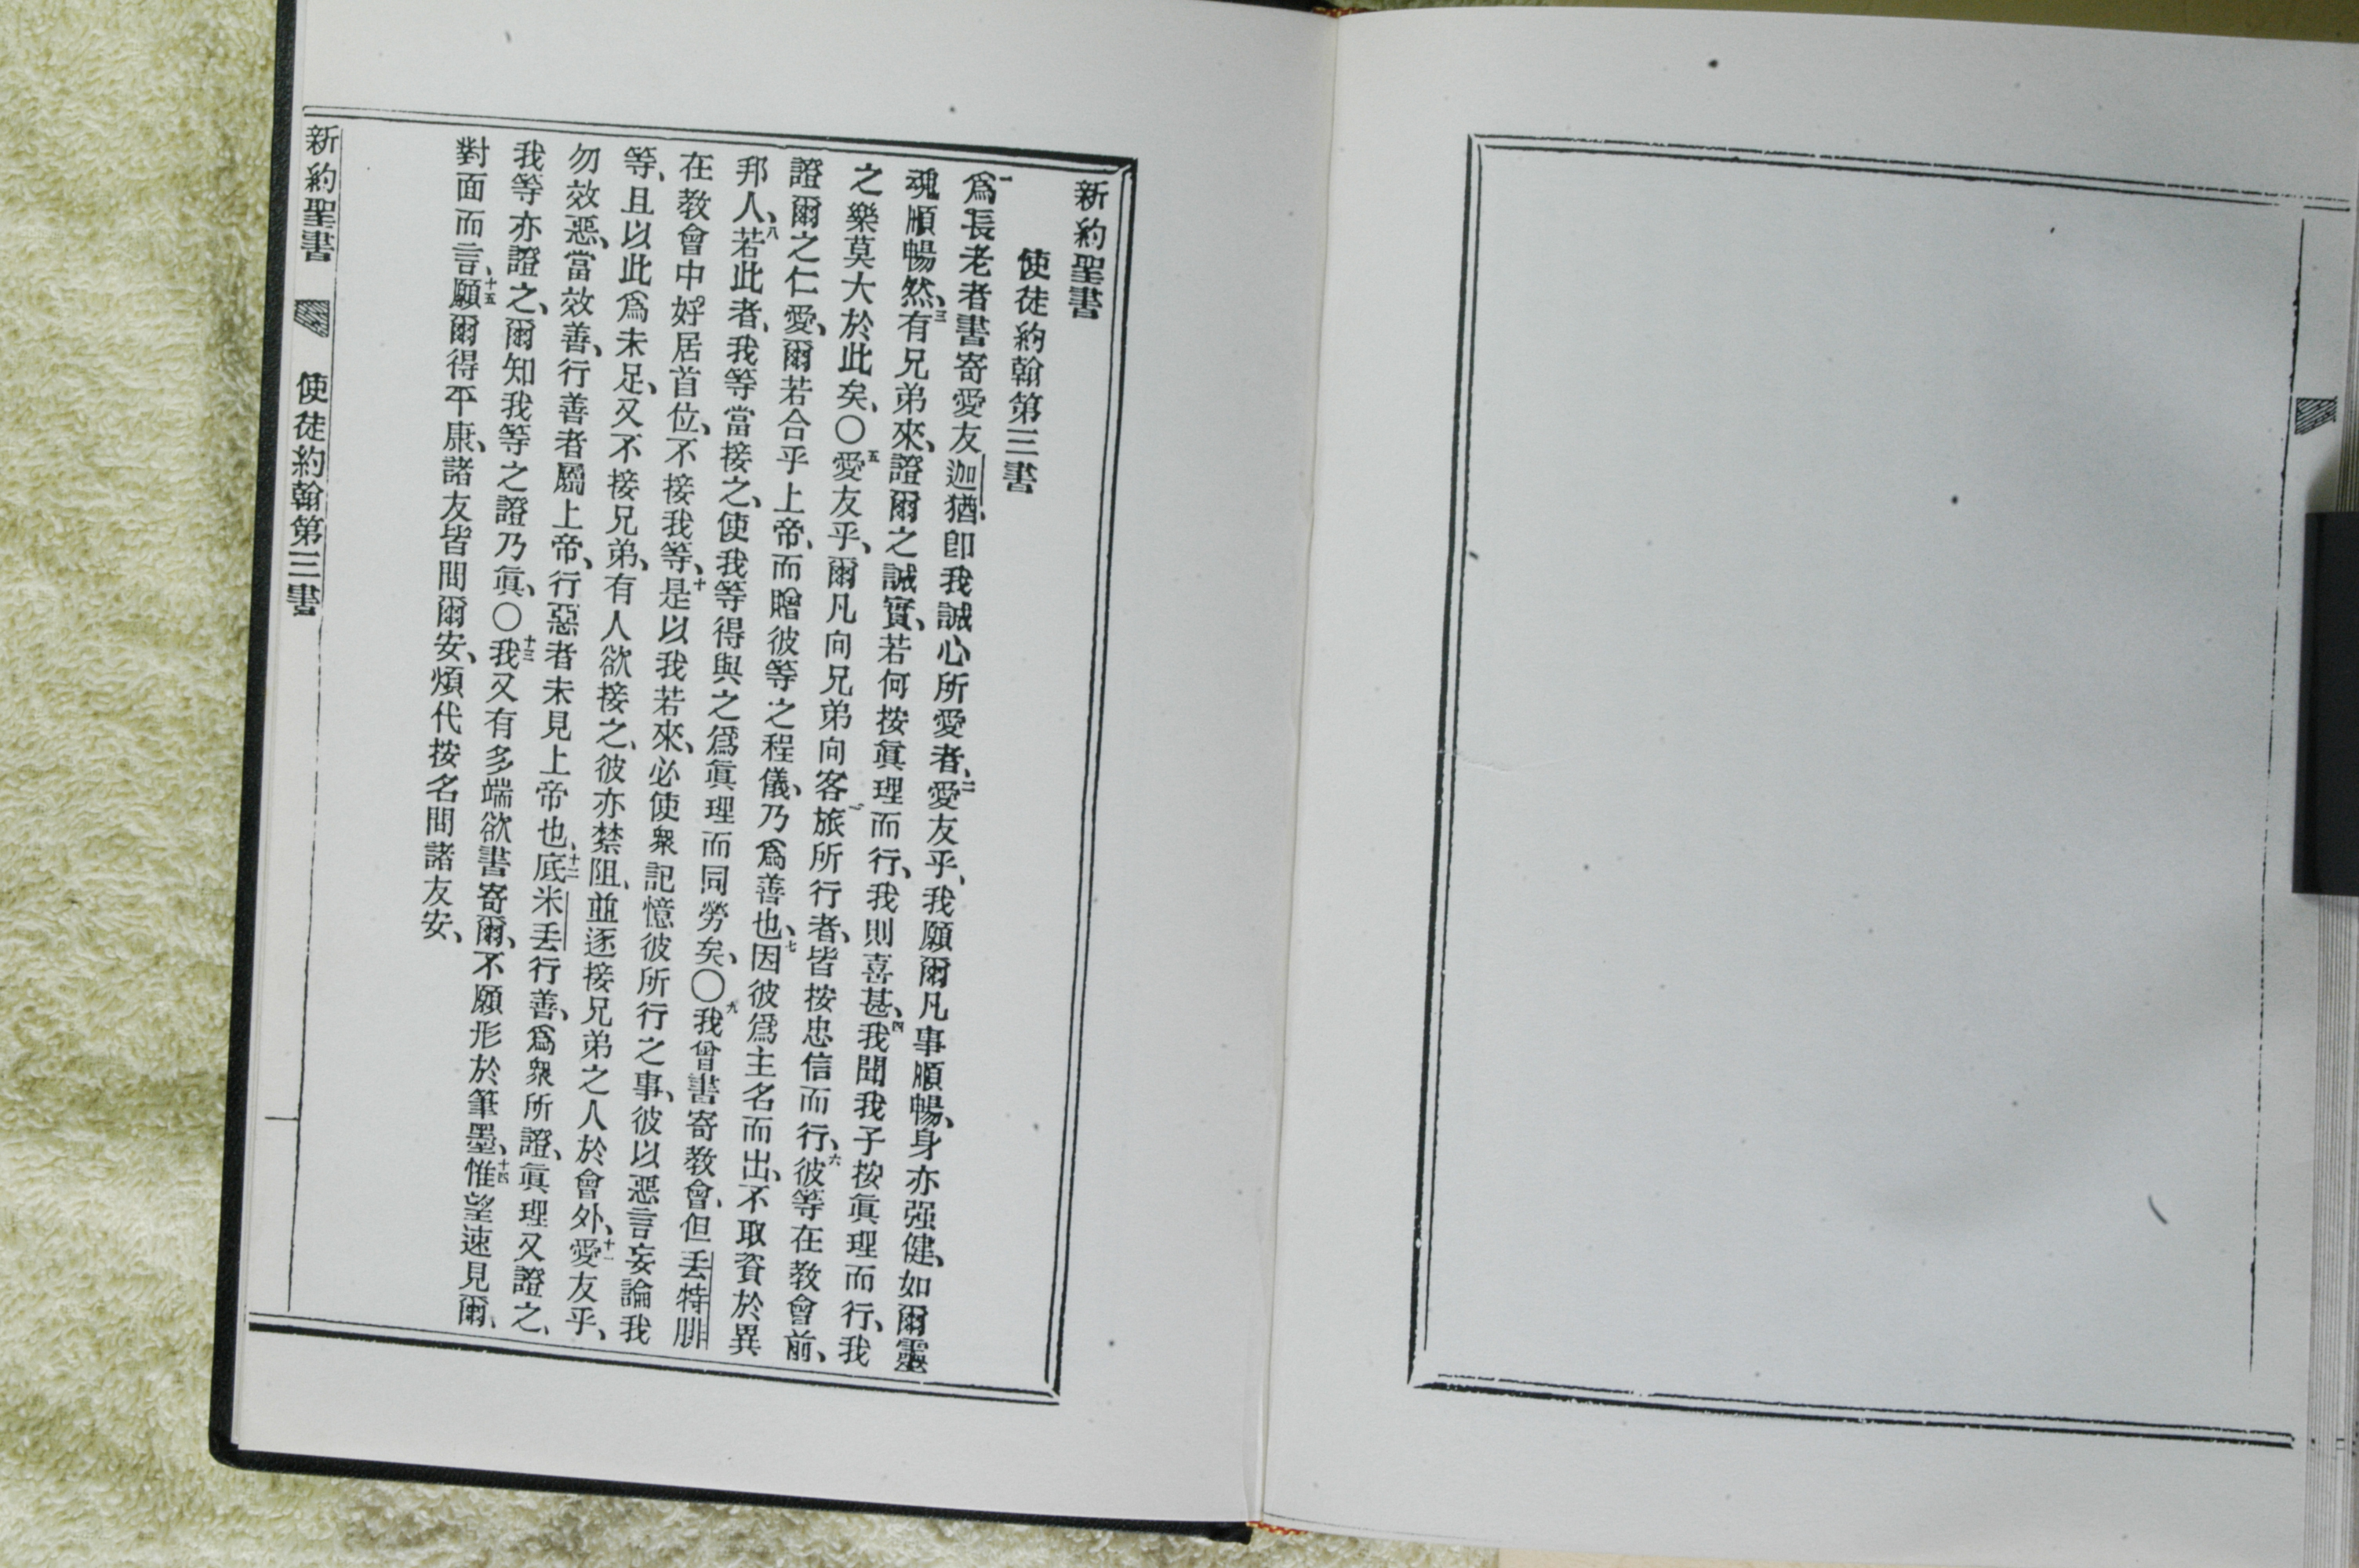 新約聖書
使徒約翰第三書
一爲長老者書寄愛友迦猶、卽我誠心所愛者、二愛友乎、我願爾凡事順暢、身亦强健、如爾靈
魂順暢然、三有兄弟來、證爾之誠實、若何按眞理而行、我則喜甚、四我聞我子按眞理而行、我
之樂莫大於此矣、〇五愛友乎、爾凡向兄弟向客旅所行者、皆按忠信而行、六彼等在教會前、
證爾之仁愛、爾若合乎上帝、而贈彼等之程儀、乃爲善也、七因彼爲主名而出、不取資於異
邦人、八若此者、我等當接之、使我等得與之爲眞理而同勞矣、〇九我曾書寄教會、但丟特腓
在教會中好居首位、不接我等、十是以我若來、必使衆記憶彼所行之事、彼以惡言妄論我
等、且以此爲未足、又不接兄弟、有人欲接之、彼亦禁阻、並逐接兄弟之人於會外、十一愛友乎、
勿效惡、當效善、行善者屬上帝、行惡者未見上帝也、十二底米丟行善、爲衆所證、眞理又證之、
我等亦證之、爾知我等之證乃眞、〇十三我又有多端欲書寄爾、不願形於筆墨、十四惟望速見爾、
對面而言、十五願爾得平康、諸友皆問爾安、煩代按名問諸友安、
新約聖書 使徒約翰第三書